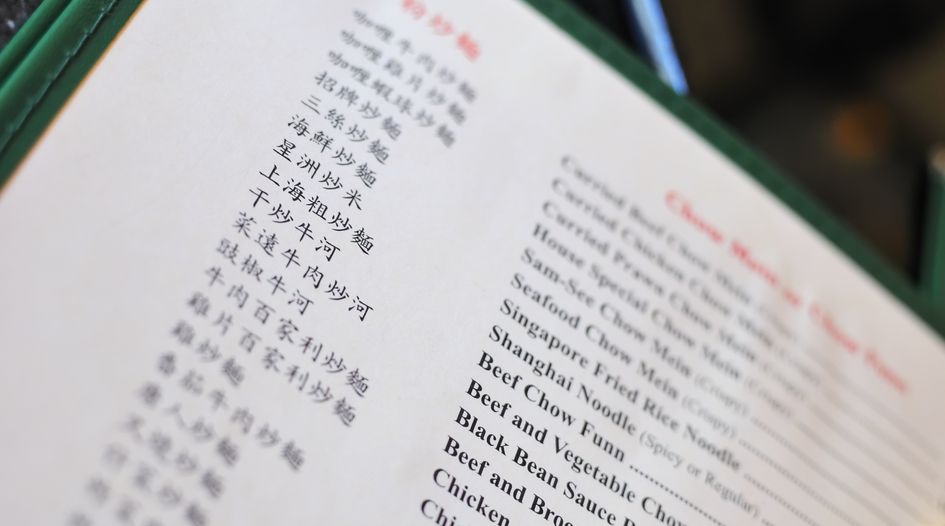 粉炒麵
咖喱牛肉炒麵
咖喱雞片炒麵
咖喱蝦球炒麵
招牌炒麵
三絲炒麵
海鮮炒麵
星洲炒米
上海粗炒麵
干炒牛河
菜遠牛肉炒河
豉椒牛河
牛肉百家利炒麵
雞片百家利炒麵
雞炒麵
番茄牛肉炒麵
唐人炒麵
Chow Mein or Chow Funn
Curried Beef Chow Mein
Curried Chicken Chow Mein
Curried Prawn Chow Mein
House Special Chow Mein (Crispy)
Sam-See Chow Mein (Crispy)
Seafood Chow Mein (Crispy)
Singapore Fried Rice Noodle
Shanghai Noodle (Spicy or Regular)
Beef Chow Funn
Beef and Vegetable Chow
Black Bean Sauce
Beef and
Chicken